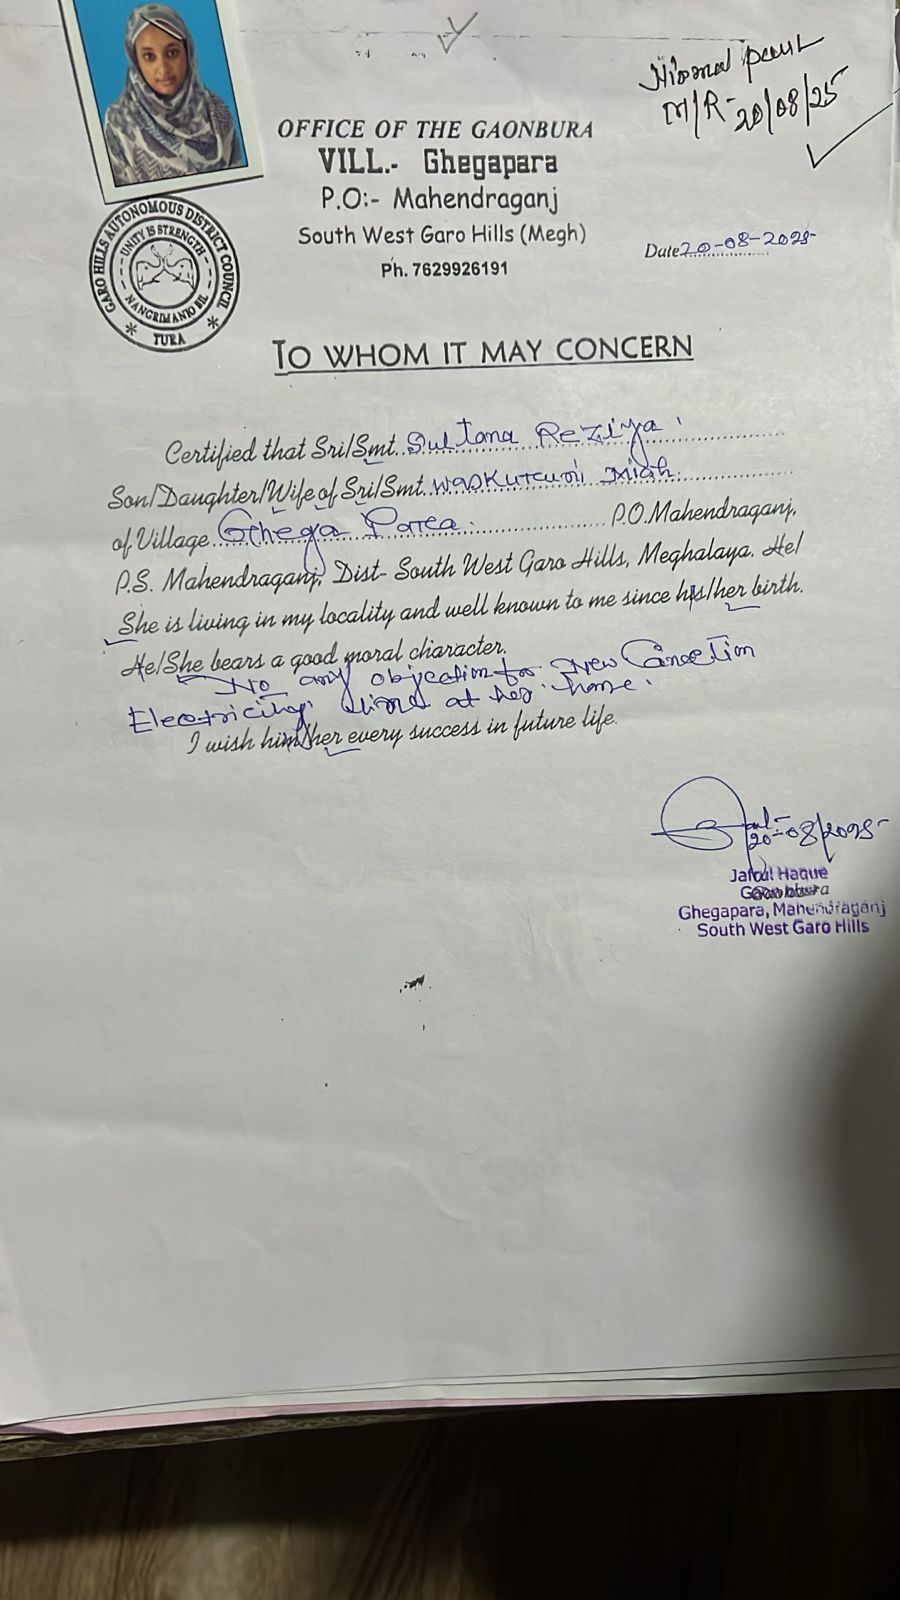 Nirmal Paul
M/R- 20/08/25
OFFICE OF THE GAONBURA
VILL.- Ghegapara
P.O:- Mahendraganj
South West Garo Hills (Megh)
Ph. 7629926191
Date 20-08-2025
GARO HILLS AUTONOMOUS DISTRICT COUNCIL
UNITY IS STRENGTH
TURA
TO WHOM IT MAY CONCERN
Certified that Sri/Smt. Sultana Reziya.
Son/Daughter/Wife of Sri/Smt. Miah.
of Village Ghega Parea. P.O. Mahendraganj,
P.S. Mahendraganj, Dist- South West Garo Hills, Meghalaya. He/
She is living in my locality and well known to me since his/her birth.
He/She bears a good moral character.
No any objection for New Conection
Electricity at her home.
I wish him/her every success in future life.
20-08/2025
Jafcul Haque
Gaonbura
Ghegapara, Mahendraganj
South West Garo Hills